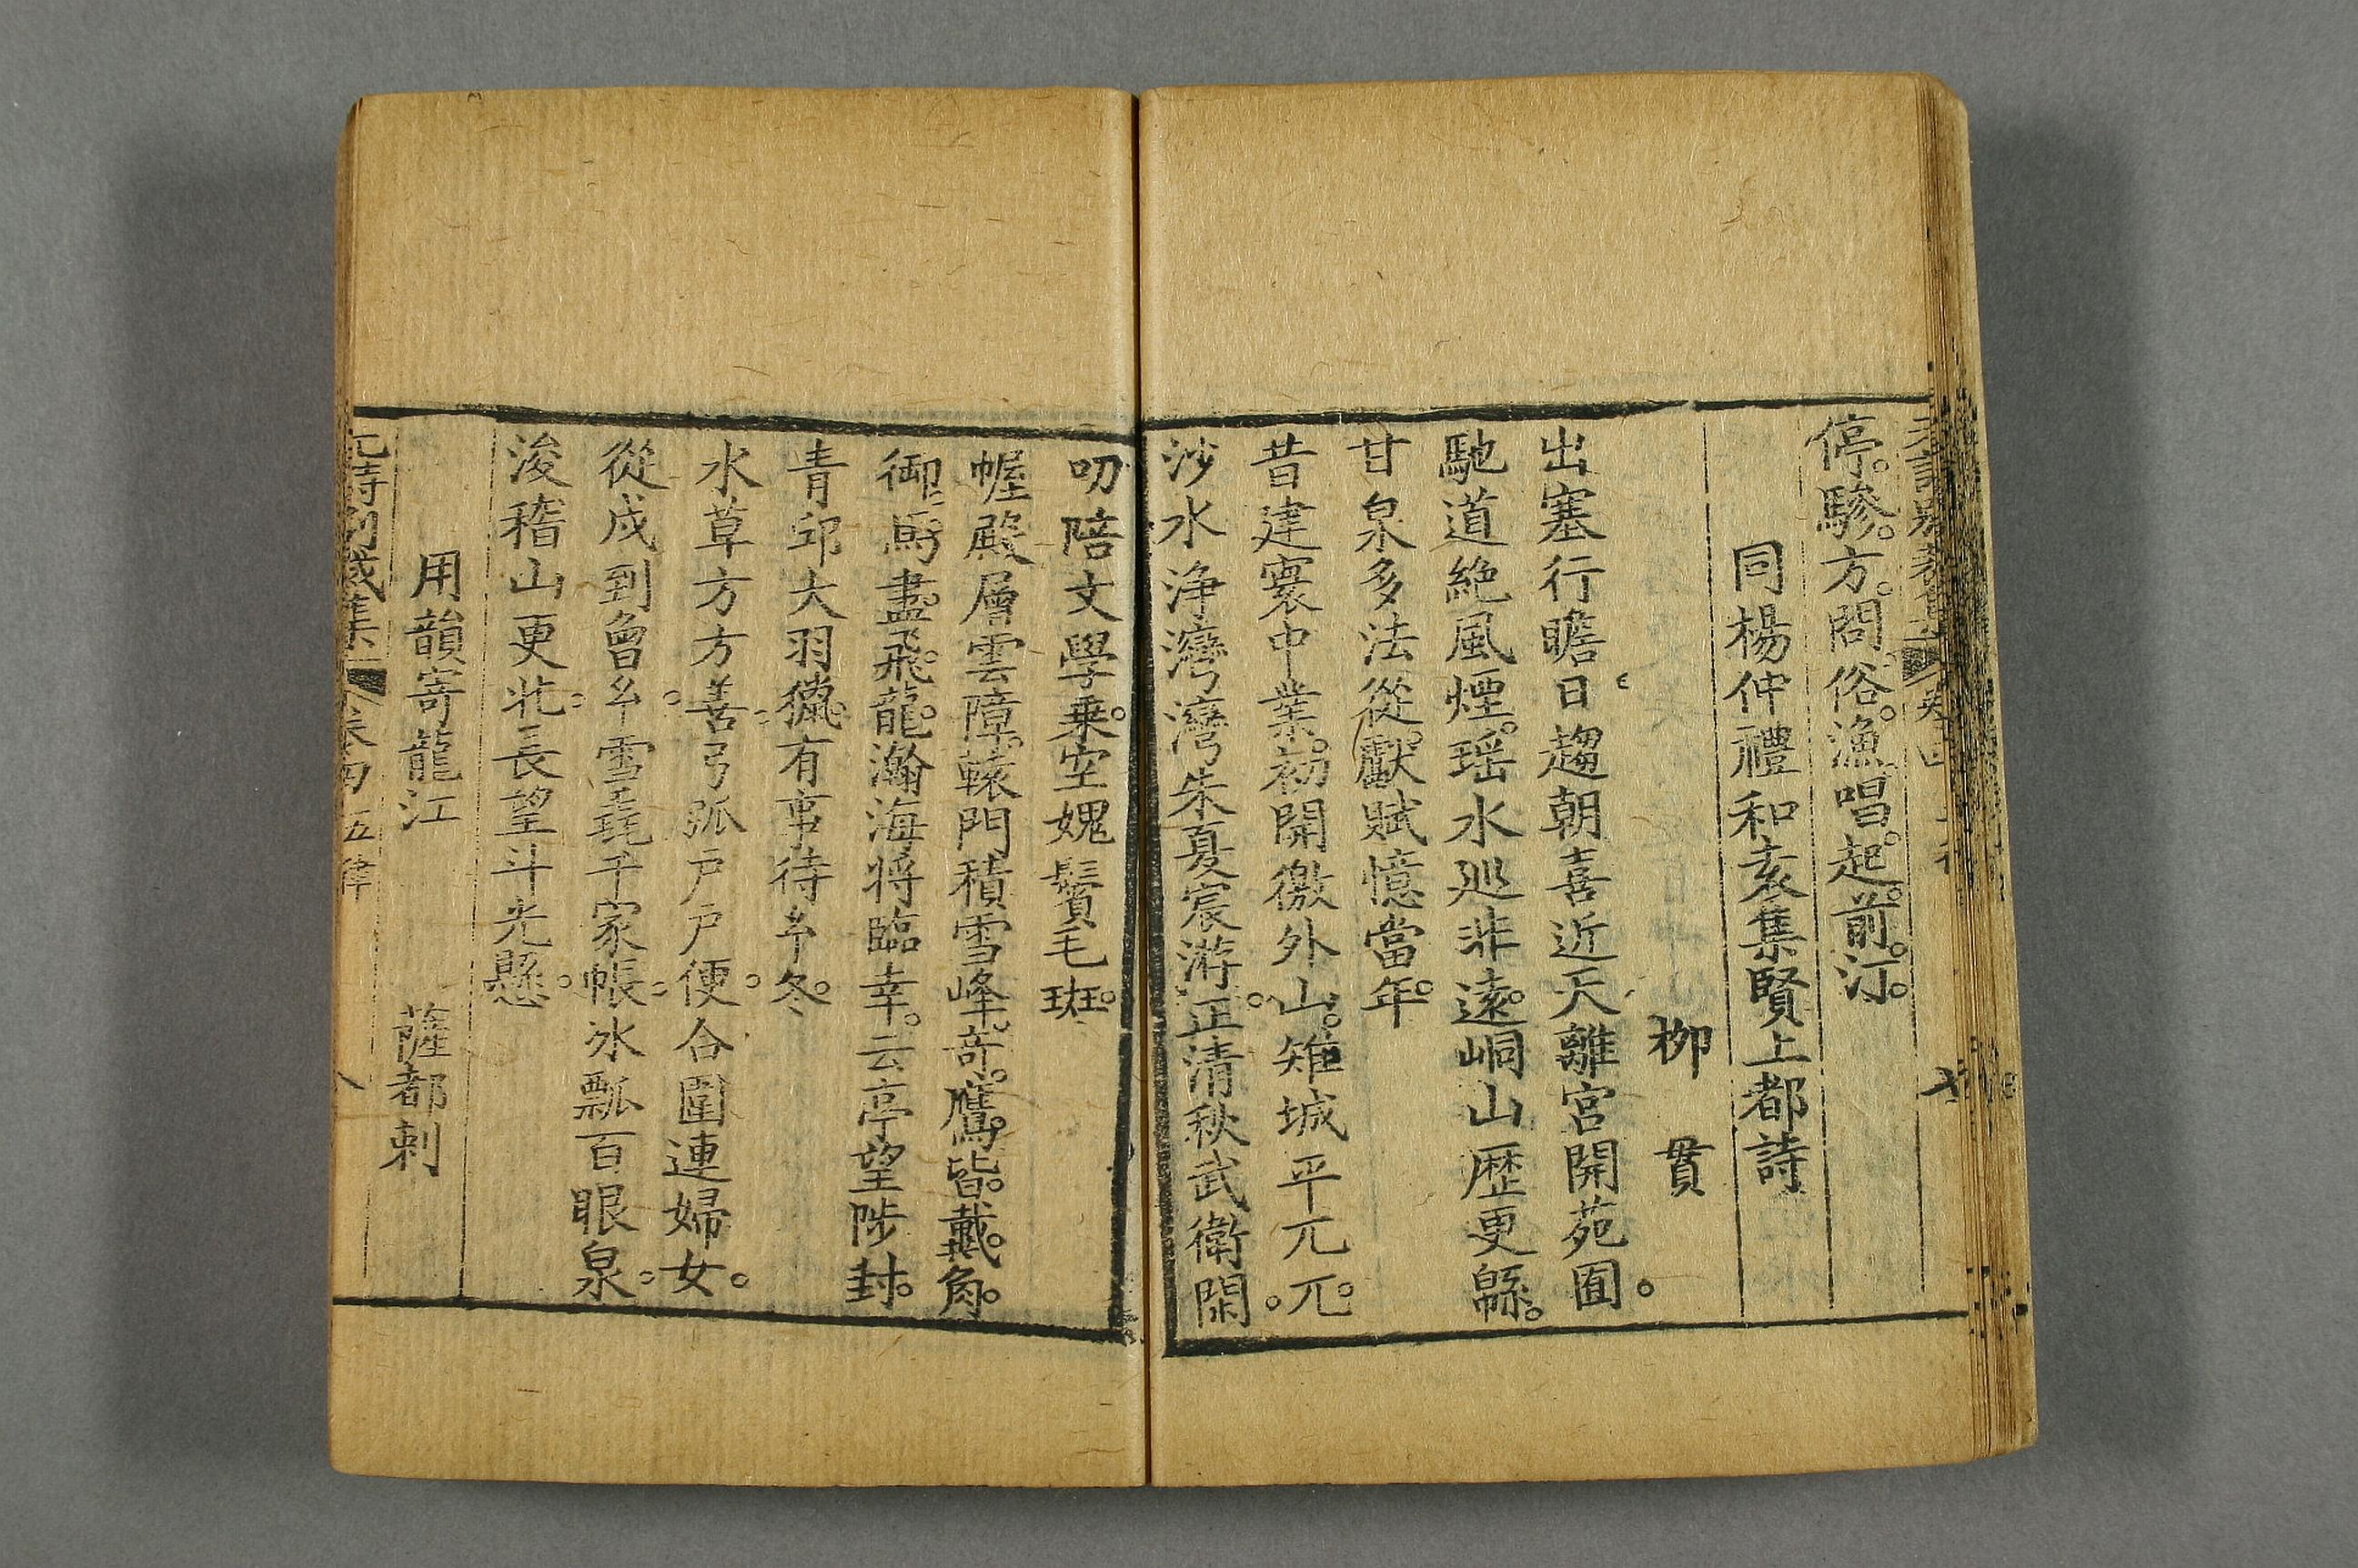 停驂方問俗漁唱起前汀
同楊仲禮和袁集賢上都詩
柳貫
出塞行瞻日趨朝喜近天離宮開苑囿
馳道絶風煙瑶水巡非遠峒山歴更緜
甘泉多法從獻賦憶當年
昔建寰中業初開徼外山雉城平兀兀
沙水浄灣灣朱夏宸游正清秋武衛閑
叨陪文學乗空媿鬢毛斑
幄殿層雲障轅門積雪峰竒鷹皆戴角
御馬盡飛龍瀚海將臨幸云亭望陟封
青邱大羽獵有事待𡵨冬
水草方方善弓弧户户便合圍連婦女
從戍到曾𡵨雪毳千家帳冰瓢百眼泉
浚稽山更北長望斗光懸
用韻寄龍江
薩都剌
元詩别裁集 卷四 五律 八